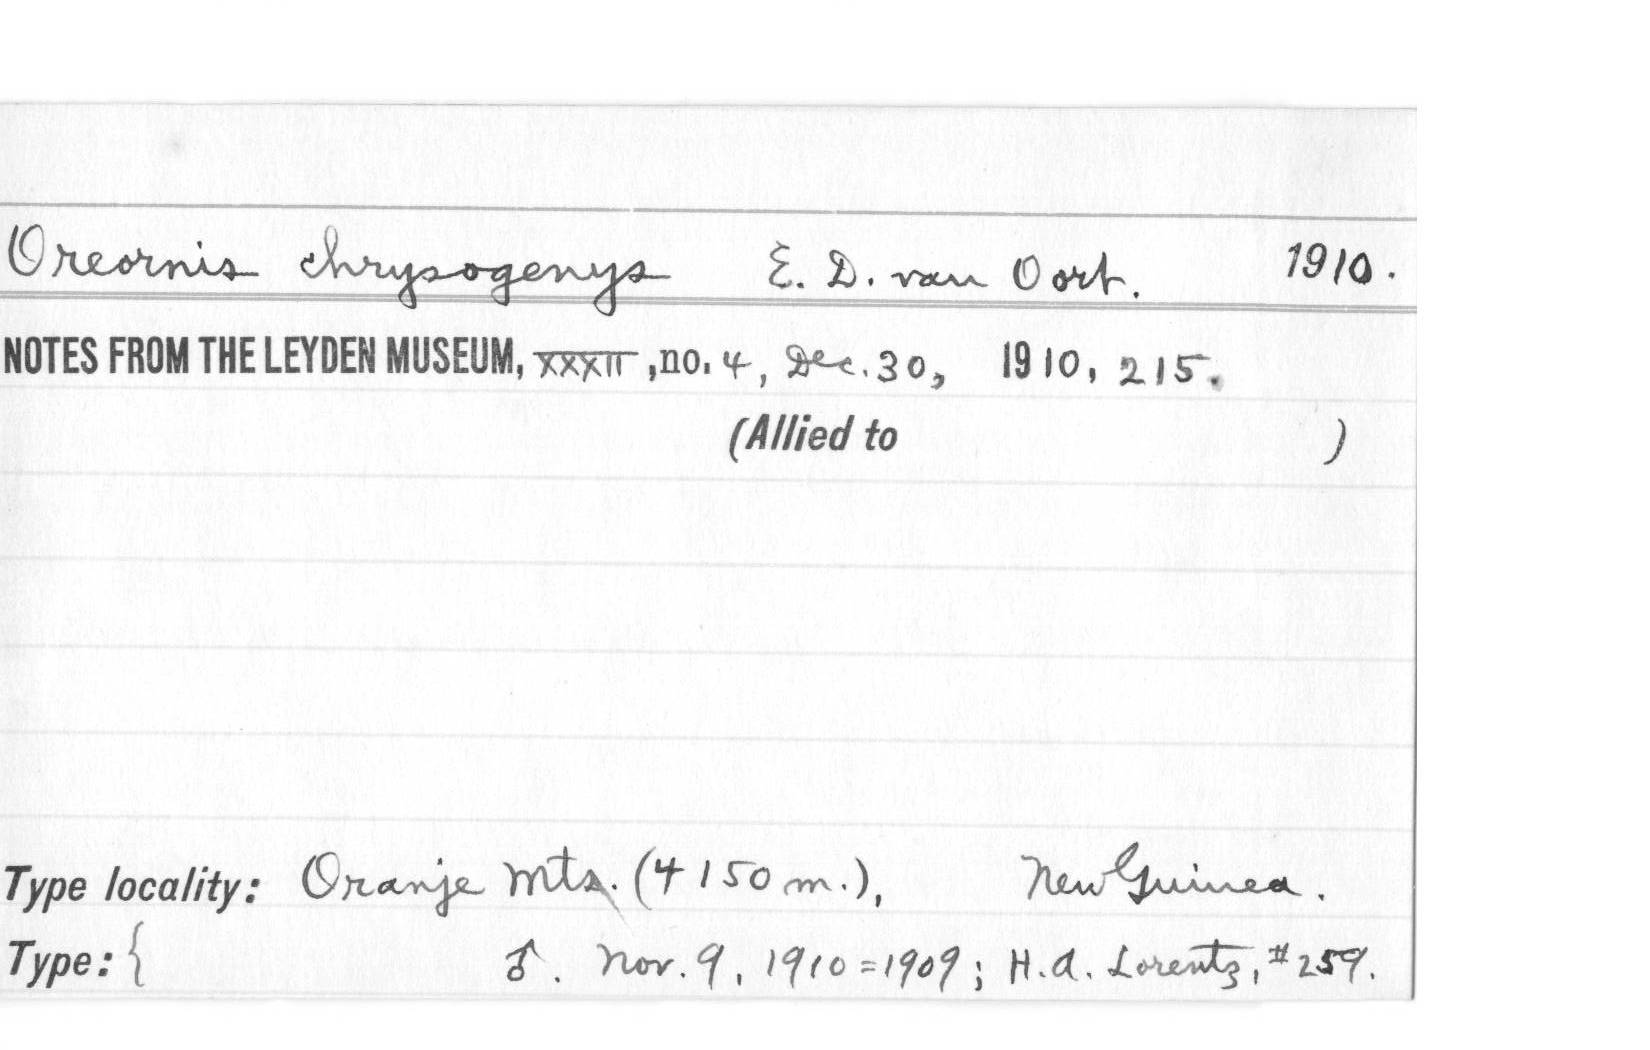 Oreornis chrysogenys E. D. van Oort. 1910.
NOTES FROM THE LEYDEN MUSEUM, XXXII, no. 4, Dec. 30, 1910, 215.
(Allied to )
Type locality: Oranje Mts. (4150 m.), New Guinea.
Type: { ♂. Nov. 9, 1910=1909; H.A. Lorentz, #259.